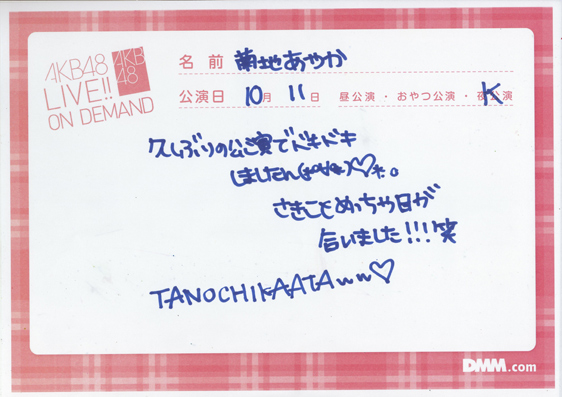 AKB48
LIVE!!
ON DEMAND
AKB
48
名 前 菊地あやか
公演日 10月 11日 昼公演・おやつ公演・夜公演 K
久しぶりの公演でドキドキ
しましたん
さきことめっちゃ目が
合いました!!!笑
TANOCHIKAATAww♡
DMM.com